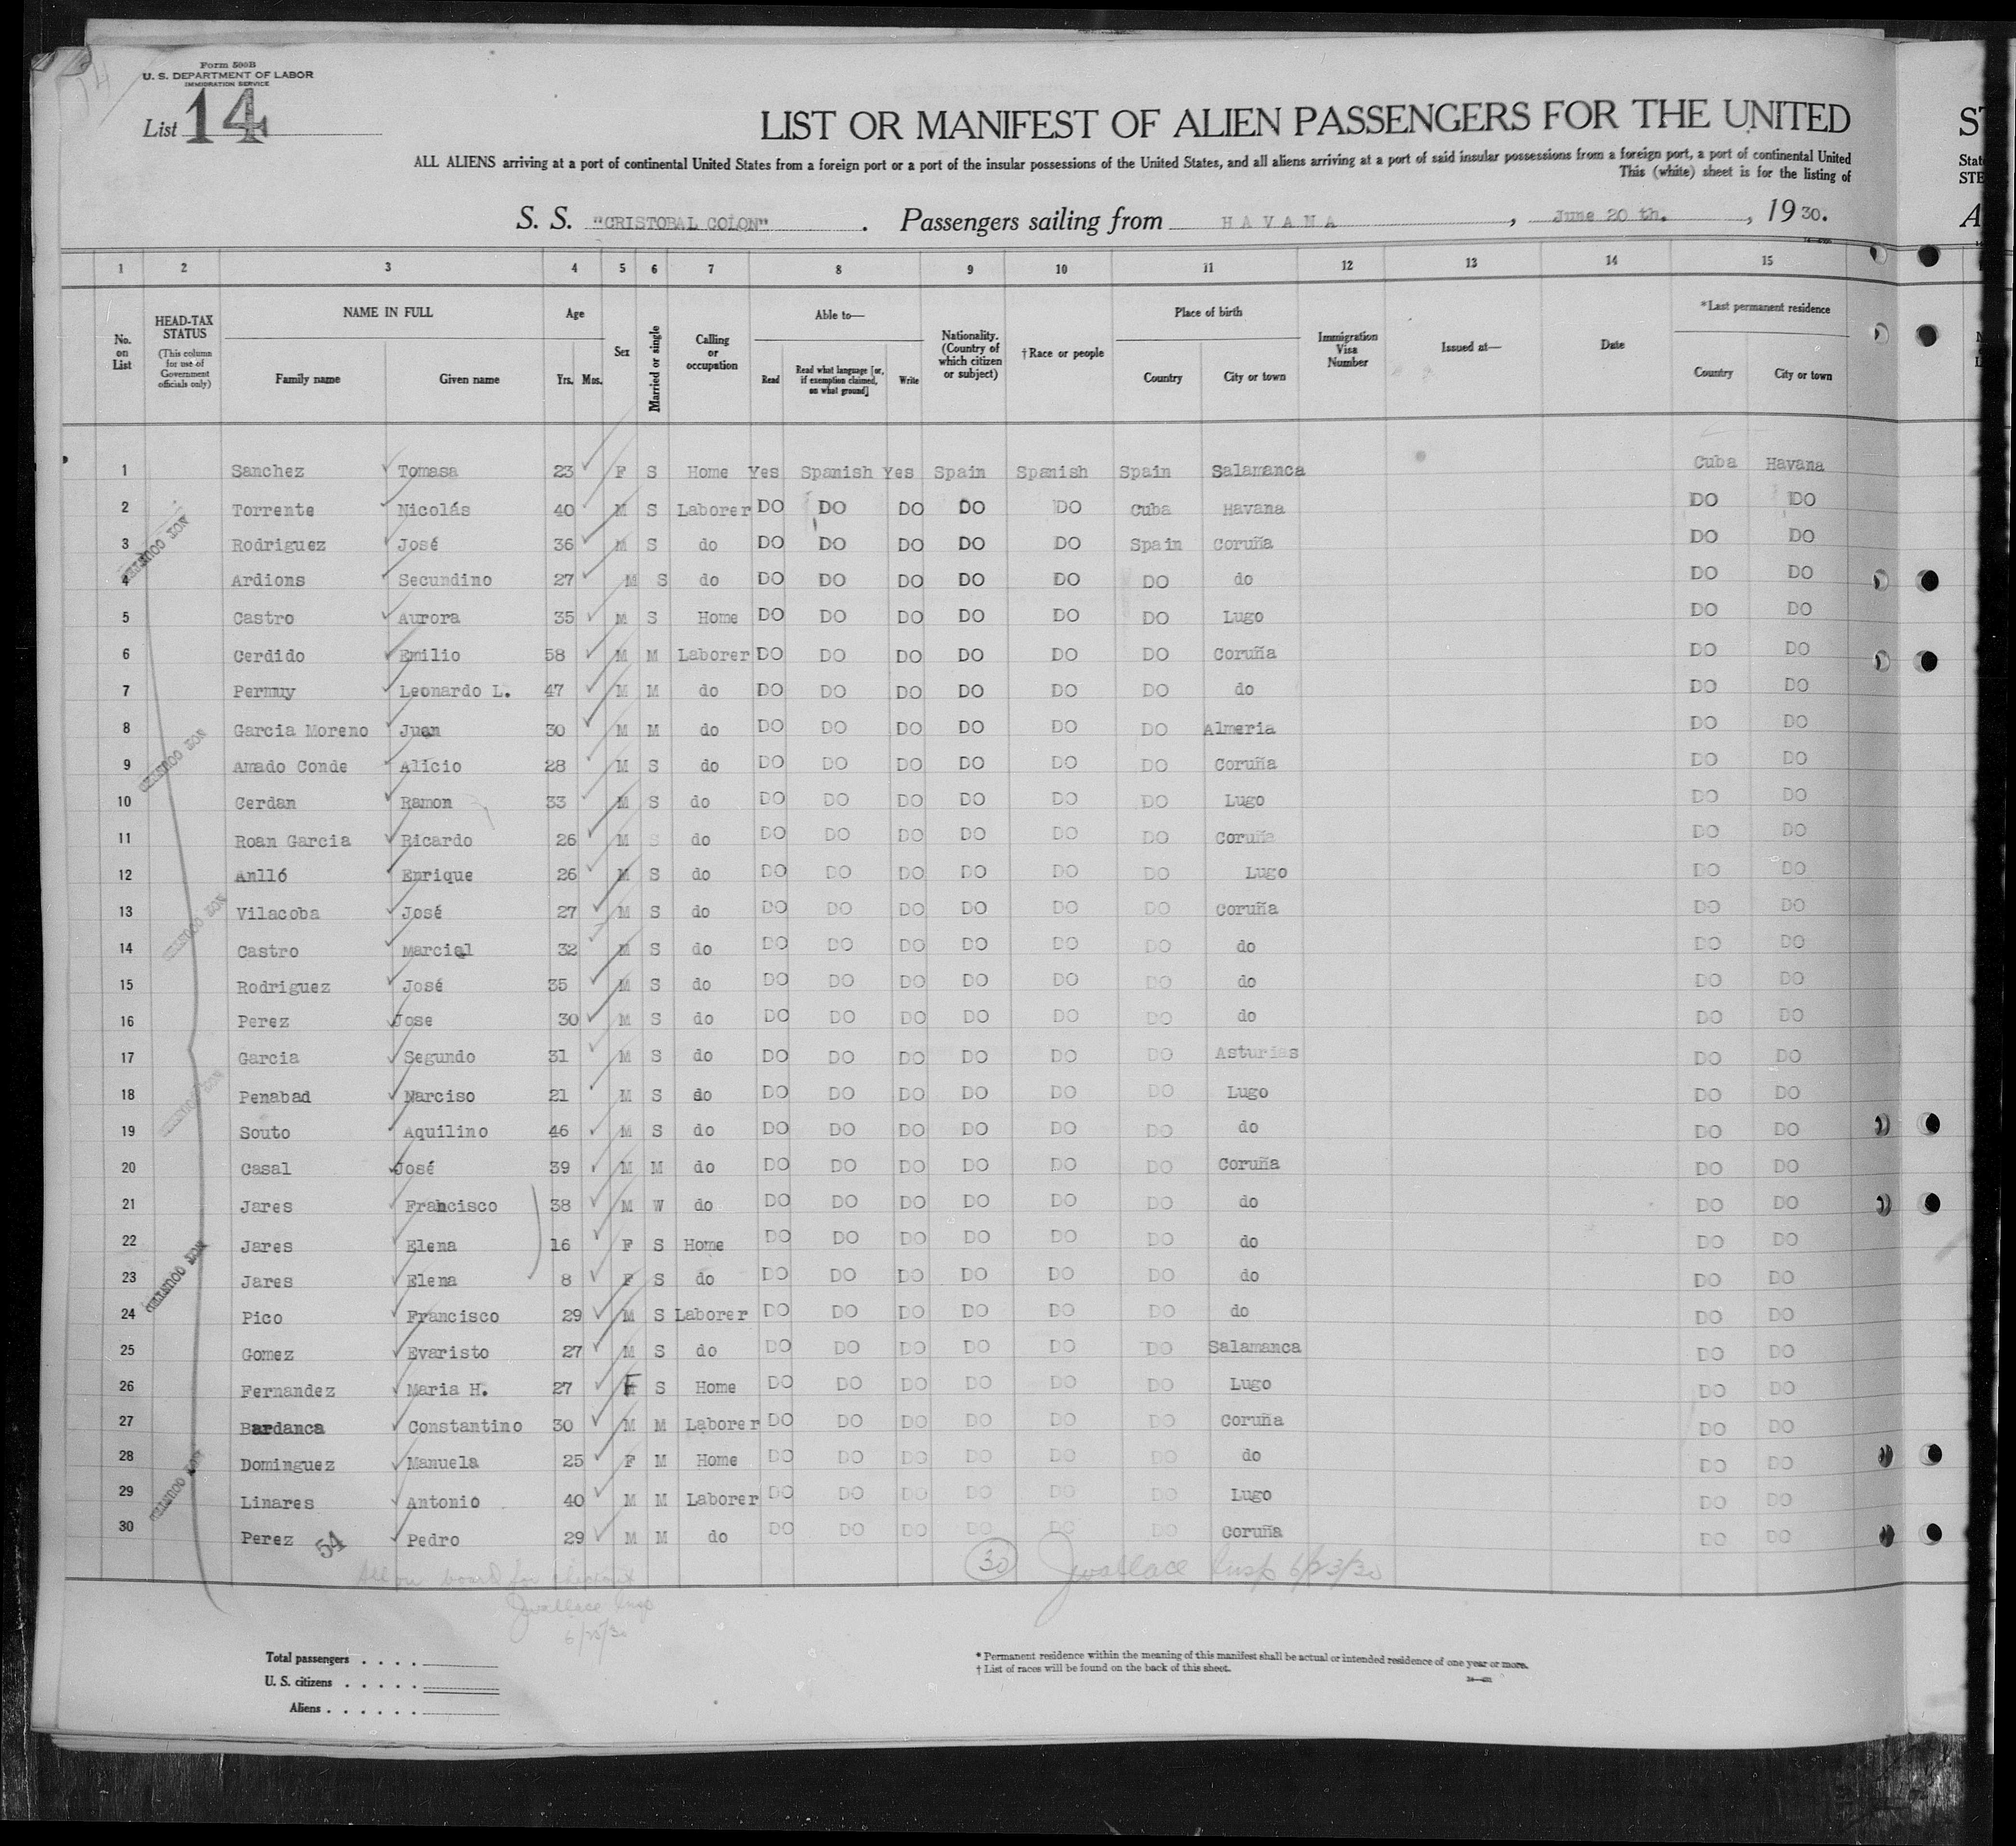 Form 500B
U. S. DEPARTMENT OF LABOR
IMMIGRATION SERVICE
List 14
LIST OR MANIFEST OF ALIEN PASSENGERS FOR THE UNITED
ALL ALIENS arriving at a port of continental United States from a foreign port or a port of the insular possessions of the United States, and all aliens arriving at a port of said insular possessions from a foreign port, a port of continental United
This (white) sheet is for the listing of
S. S. "CRISTOBAL COLON". Passengers sailing from HAVANA, June 20 th., 1930.
1 2 3 4 5 6 7 8 9 10 11 12 13 14 15
No. on List HEAD-TAX STATUS (This column for use of Government officials only) NAME IN FULL Family name Given name Age Yrs. Mos. Sex Married or single Calling or occupation Able to— Read Read what language [or, if exemption claimed, on what ground] Write Nationality. (Country of which citizen or subject) †Race or people Place of birth Country City or town Immigration Visa Number Issued at— Date *Last permanent residence Country City or town
1 Sanchez Tomasa 23 F S Home Yes Spanish Yes Spain Spanish Spain Salamanca Cuba Havana
2 Torrente Nicolás 40 M S Laborer DO DO DO DO DO Cuba Havana DO DO
3 Rodriguez José 36 M S do DO DO DO DO DO Spain Coruña DO DO
4 Ardions Secundino 27 M S do DO DO DO DO DO DO do DO DO
5 Castro Aurora 35 M S Home DO DO DO DO DO DO Lugo DO DO
6 Cerdido Emilio 58 M M Laborer DO DO DO DO DO DO Coruña DO DO
7 Permuy Leonardo L. 47 M M do DO DO DO DO DO DO do DO DO
8 Garcia Moreno Juan 30 M M do DO DO DO DO DO DO Almeria DO DO
9 Amado Conde Alicio 28 M S do DO DO DO DO DO DO Coruña DO DO
10 Cerdan Ramon 33 M S do DO DO DO DO DO DO Lugo DO DO
11 Roan Garcia Ricardo 26 M S do DO DO DO DO DO DO Coruña DO DO
12 Anlló Enrique 26 M S do DO DO DO DO DO DO Lugo DO DO
13 Vilacoba José 27 M S do DO DO DO DO DO DO Coruña DO DO
14 Castro Marcial 32 M S do DO DO DO DO DO DO do DO DO
15 Rodriguez José 35 M S do DO DO DO DO DO DO do DO DO
16 Perez Jose 30 M S do DO DO DO DO DO DO do DO DO
17 Garcia Segundo 31 M S do DO DO DO DO DO DO Asturias DO DO
18 Penabad Narciso 21 M S do DO DO DO DO DO DO Lugo DO DO
19 Souto Aquilino 46 M S do DO DO DO DO DO DO do DO DO
20 Casal José 39 M M do DO DO DO DO DO DO Coruña DO DO
21 Jares Francisco 38 M W do DO DO DO DO DO DO do DO DO
22 Jares Elena 16 F S Home DO DO DO DO DO DO do DO DO
23 Jares Elena 8 F S do DO DO DO DO DO DO do DO DO
24 Pico Francisco 29 M S Laborer DO DO DO DO DO DO do DO DO
25 Gomez Evaristo 27 M S do DO DO DO DO DO DO Salamanca DO DO
26 Fernandez Maria H. 27 F S Home DO DO DO DO DO DO Lugo DO DO
27 Bardanca Constantino 30 M M Laborer DO DO DO DO DO DO Coruña DO DO
28 Dominguez Manuela 25 F M Home DO DO DO DO DO DO do DO DO
29 Linares Antonio 40 M M Laborer DO DO DO DO DO DO Lugo DO DO
30 Perez Pedro 29 M M do DO DO DO DO DO DO Coruña DO DO
54
30 JWallace Insp 6/23/30
All on board for checkout
JWallace Insp
Total passengers . . . .
U. S. citizens . . . . .
Aliens . . . . . .
* Permanent residence within the meaning of this manifest shall be actual or intended residence of one year or more.
† List of races will be found on the back of this sheet.